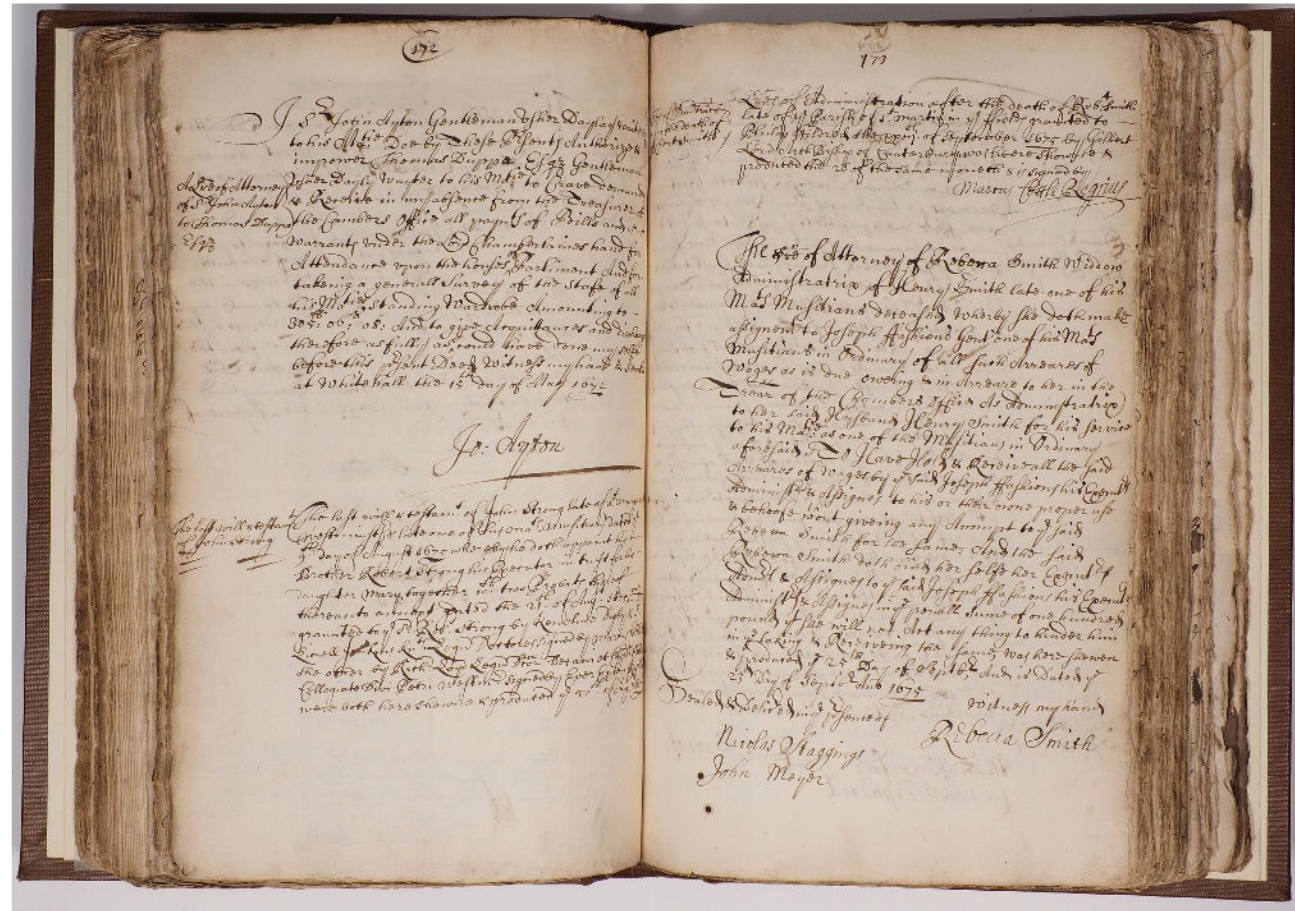 172
I Sr John Ayton Gentleman Usher Dayly waiter
to his Matie Doe by These Psents Authorize &
impower Thomas Duppa Esqr Gentleman
Usher Dayly Wayter to his Mtie to Crave demand
& Receive in my absence from the Treasurer of
the Chambers Office all paymts of Bills and
Warrants under the Lord Chamberlaines hand for
Attendance upon the houses Parliment And for
takeing a generall Survey of the Stafe of all
his Mties Standing Wardrobe Amounting to
305: 06: 08: And to give Acquittances and
therefore as fully as I could have done my selfe
before this psent Deed Witness my hand & Seale
at Whitehall the 15th day of May 1672
A Lre of Attorney
of Sr John Ayton
to Thomas Duppa
Esqr
Jo: Ayton
The last will & testa
of John Strong
The last will & testamt of John Strong late of St
Westminster late one of his Musitians dated
5th day of August 1675 whereby he doth appoint his
Brother Robert Strong his Executor in trust for his
daughter Mary, together with two Probats
thereunto annext dated the 21th of Aug:
graunted to ye sd Robt Strong by
the other by Rich:
Collegiat
were both here shewed & produced ye
173
Lres of Administration after the death of Robt Smith
late of ye Parish of St martin in ye ffields granted to
Philip Hildred the of September 1675 by Gilbert
Lord Arch Bishop of Canterbury was here showne &
produced the 28 of the same moneth & is signed by
Marcus Regius
the death of
Smith
The Lre of Attorney of Rebecca Smith Widdow
Administratrix of Henry Smith late one of his
Mats Musitians deceased, whereby she doth make
assignemt to Joseph ffashions Gent one of his Mats
Musitians in Ordinary of all such Arreares of
Wages as is due oweing & in Arreare to her in the
Trear of the Chambers Office As Administratrix
to her said Husband Henry Smith for his service
to his Matie as one of the Musitians in Ordinary
aforesaid To Have Hold & Receive all the said
Arreares of Wages by ye said Joseph ffashions his Execut
Administrs & Assignes to his or their owne proper use
& behoofe wthout giveing any Accompt to ye said
Rebecca Smith for the same: And the said
Rebecca Smith doth bind her selfe her Execut
& Assignes to ye said Joseph ffashions his Execut
Administrs & Assignes in ye penall Sume of one hundred
pounds yt she will not Act any thing to hinder him
in ye takeing & Receiveing the same, was here shewen
& produced ye 25th Day of Septbr And is Dated ye
Day of Septbr 1675
Sealed & Delived in ye psence of
Witness my hand
Rebecca Smith
Nicolas Staggings
John Meyer